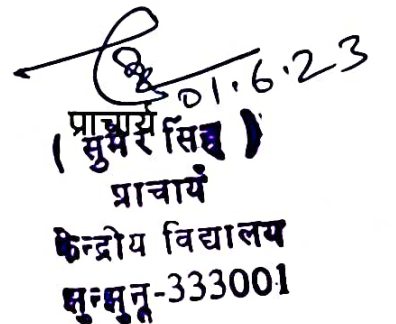 01.6.23
प्राचार्य
( सुमेर सिंह )
प्राचार्य
केन्द्रीय विद्यालय
झुन्झुनू-333001